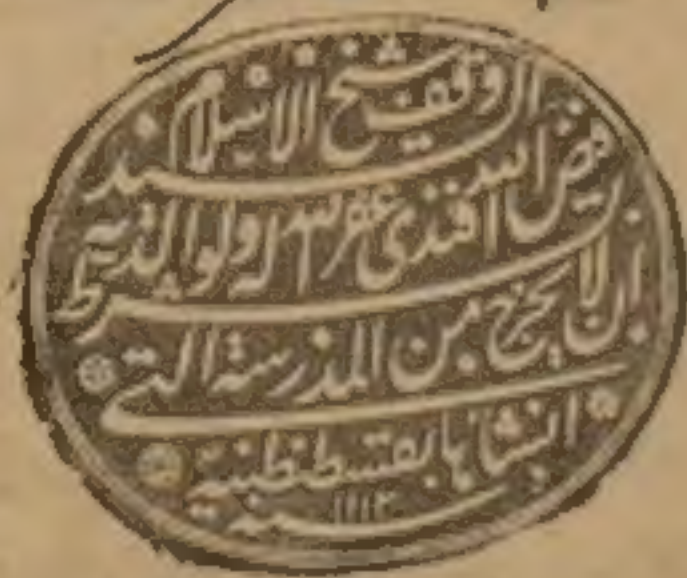 وقف شيخ الاسلام السيد
فيض الله افندى غفر الله له ولوالديه
بشرط
ان لا يخرج من المدرسة التى
انشاها بقسطنطينية
سنة ١١١٢